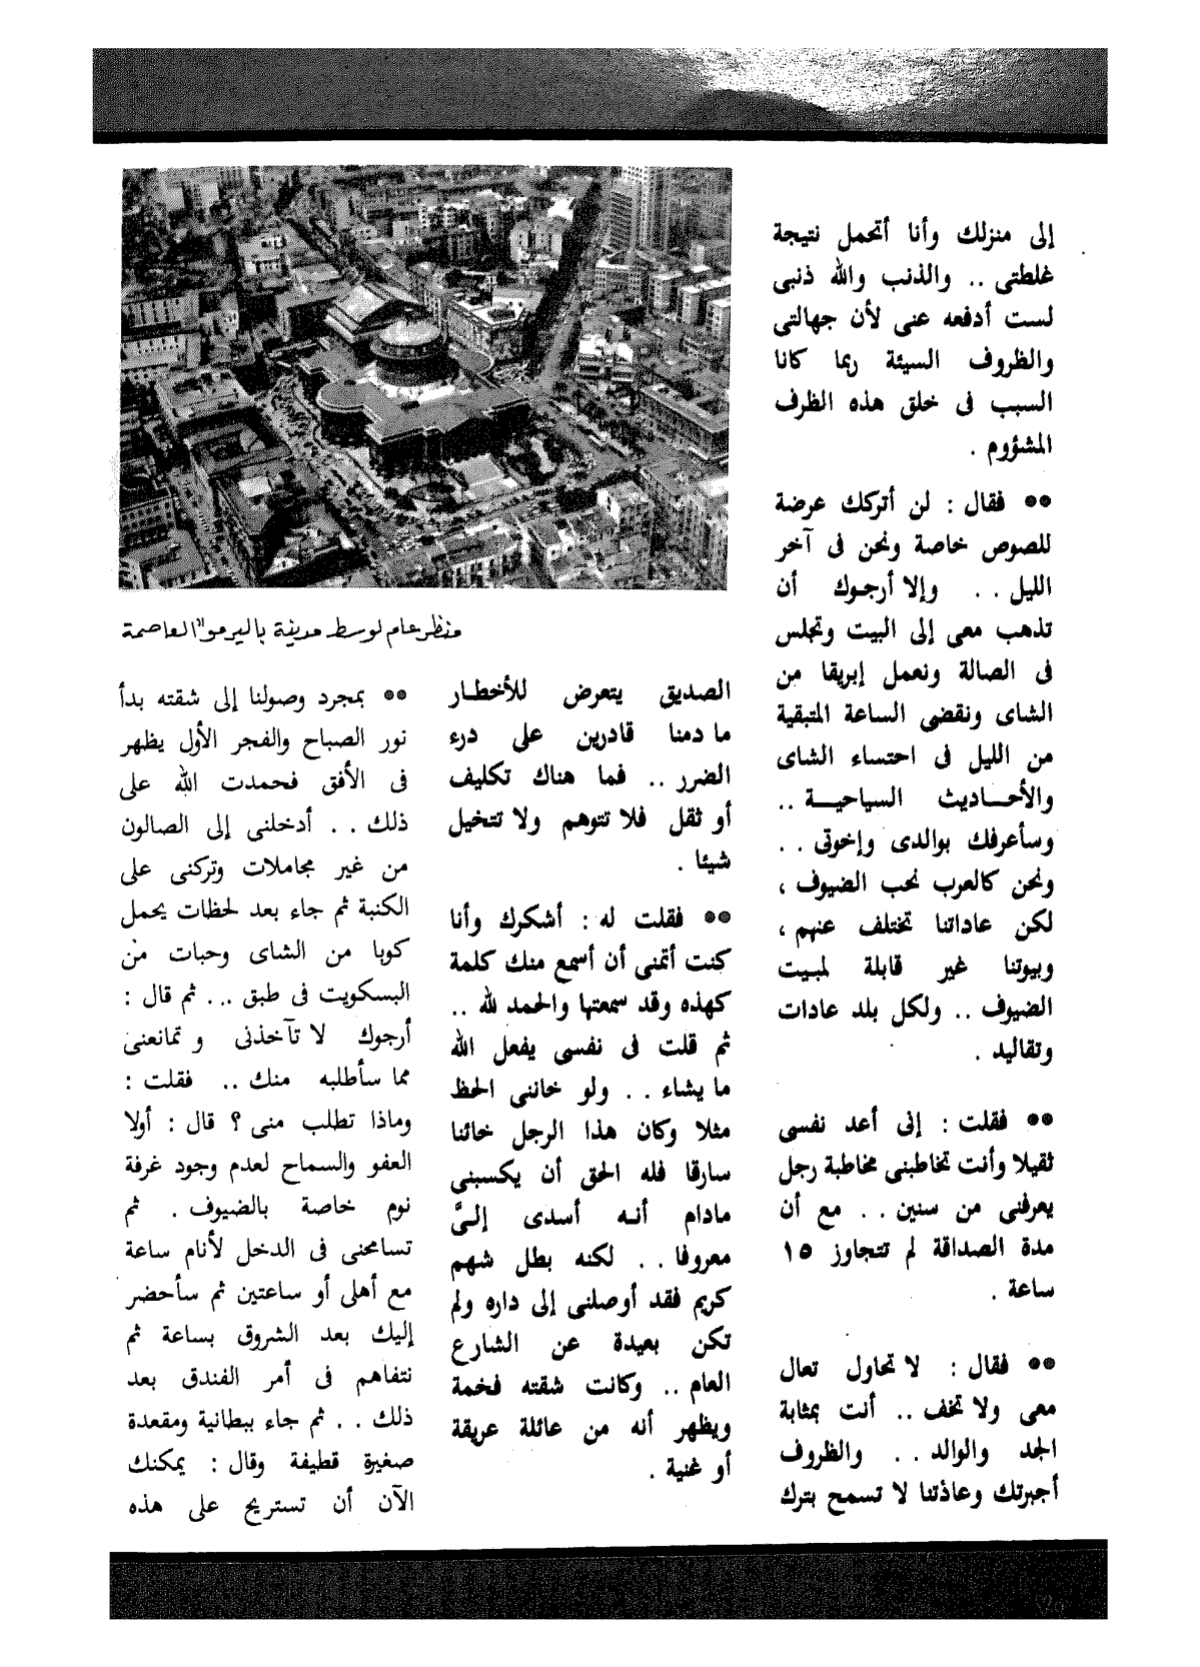 إلى منزلك وأنا أتحمل نتيجة
غلطتى .. والذنب والله ذنبى
لست أدفعه عنى لأن جهالتى
والظروف السيئة ربما كانا
السبب فى خلق هذه الظرف
المشؤوم .
●● فقال : لن أتركك عرضة
للصوص خاصة ونحن فى آخر
الليل . . وإلا أرجوك أن
تذهب معى إلى البيت وتجلس
فى الصالة ونعمل إبريقا من
الشاى ونقضى الساعة المتبقية
من الليل فى احتساء الشاى
والأحـاديث السياحيـــة ..
وسأعرفك بوالدى وإخوتى . .
ونحن كالعرب نحب الضيوف ،
لكن عاداتنا تختلف عنهم ،
وبيوتنا غير قابلة لمبيت
الضيوف .. ولكل بلد عادات
وتقاليد .
●● فقلت : إنى أعد نفسى
ثقيلا وأنت تخاطبنى مخاطبة رجل
يعرفنى من سنين . . مع أن
مدة الصداقة لم تتجاوز ١٥
ساعة .
●● فقال : لا تحاول تعال
معى ولا تخف .. أنت بمثابة
الجد والوالد . . والظروف
أجبرتك وعاذتنا لا تسمح بترك
منظر عام لوسط مدينة باليرمو" العاصمة
الصديق يتعرض للأخطـار
ما دمنا قادرين على درء
الضرر .. فما هناك تكليف
أو ثقل فلا تتوهم ولا تتخيل
شيئا .
●● فقلت له : أشكرك وأنا
كنت أتمنى أن أسمع منك كلمة
كهذه وقد سمعتها والحمد لله ..
ثم قلت فى نفسى يفعل الله
ما يشاء . . ولو خاننى الحظ
مثلا وكان هذا الرجل خائنا
سارقا فله الحق أن يكسبنى
مادام أنـه أسدى إلـىَّ
معروفا . . لكنه بطل شهم
كريم فقد أوصلنى إلى داره ولم
تكن بعيدة عن الشارع
العام .. وكانت شقته فخمة
ويظهر أنه من عائلة عريقة
أو غنية .
●● بمجرد وصولنا إلى شقته بدأ
نور الصباح والفجر الأول يظهر
فى الأفق فحمدت الله على
ذلك . . أدخلنى إلى الصالون
من غير مجاملات وتركنى على
الكنبة ثم جاء بعد لحظات يحمل
كوبا من الشاى وحبات من
البسكويت فى طبق .. ثم قال :
أرجوك لا تآخذنى و تمانعنى
مما سأطلبه منك .. فقلت :
وماذا تطلب منى ؟ قال : أولا
العفو والسماح لعدم وجود غرفة
نوم خاصة بالضيوف . ثم
تسامحنى فى الدخل لأنام ساعة
مع أهلى أو ساعتين ثم سأحضر
إليك بعد الشروق بساعة ثم
نتفاهم فى أمر الفندق بعد
ذلك . . ثم جاء ببطانية ومقعدة
صغيرة قطيفة وقال : يمكنك
الآن أن تستريح على هذه
٧٥